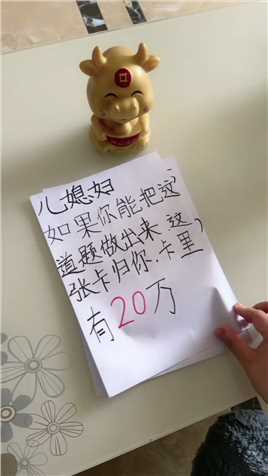 儿媳妇
如果你能把这
道题做出来这
张卡归你.卡里
有20万